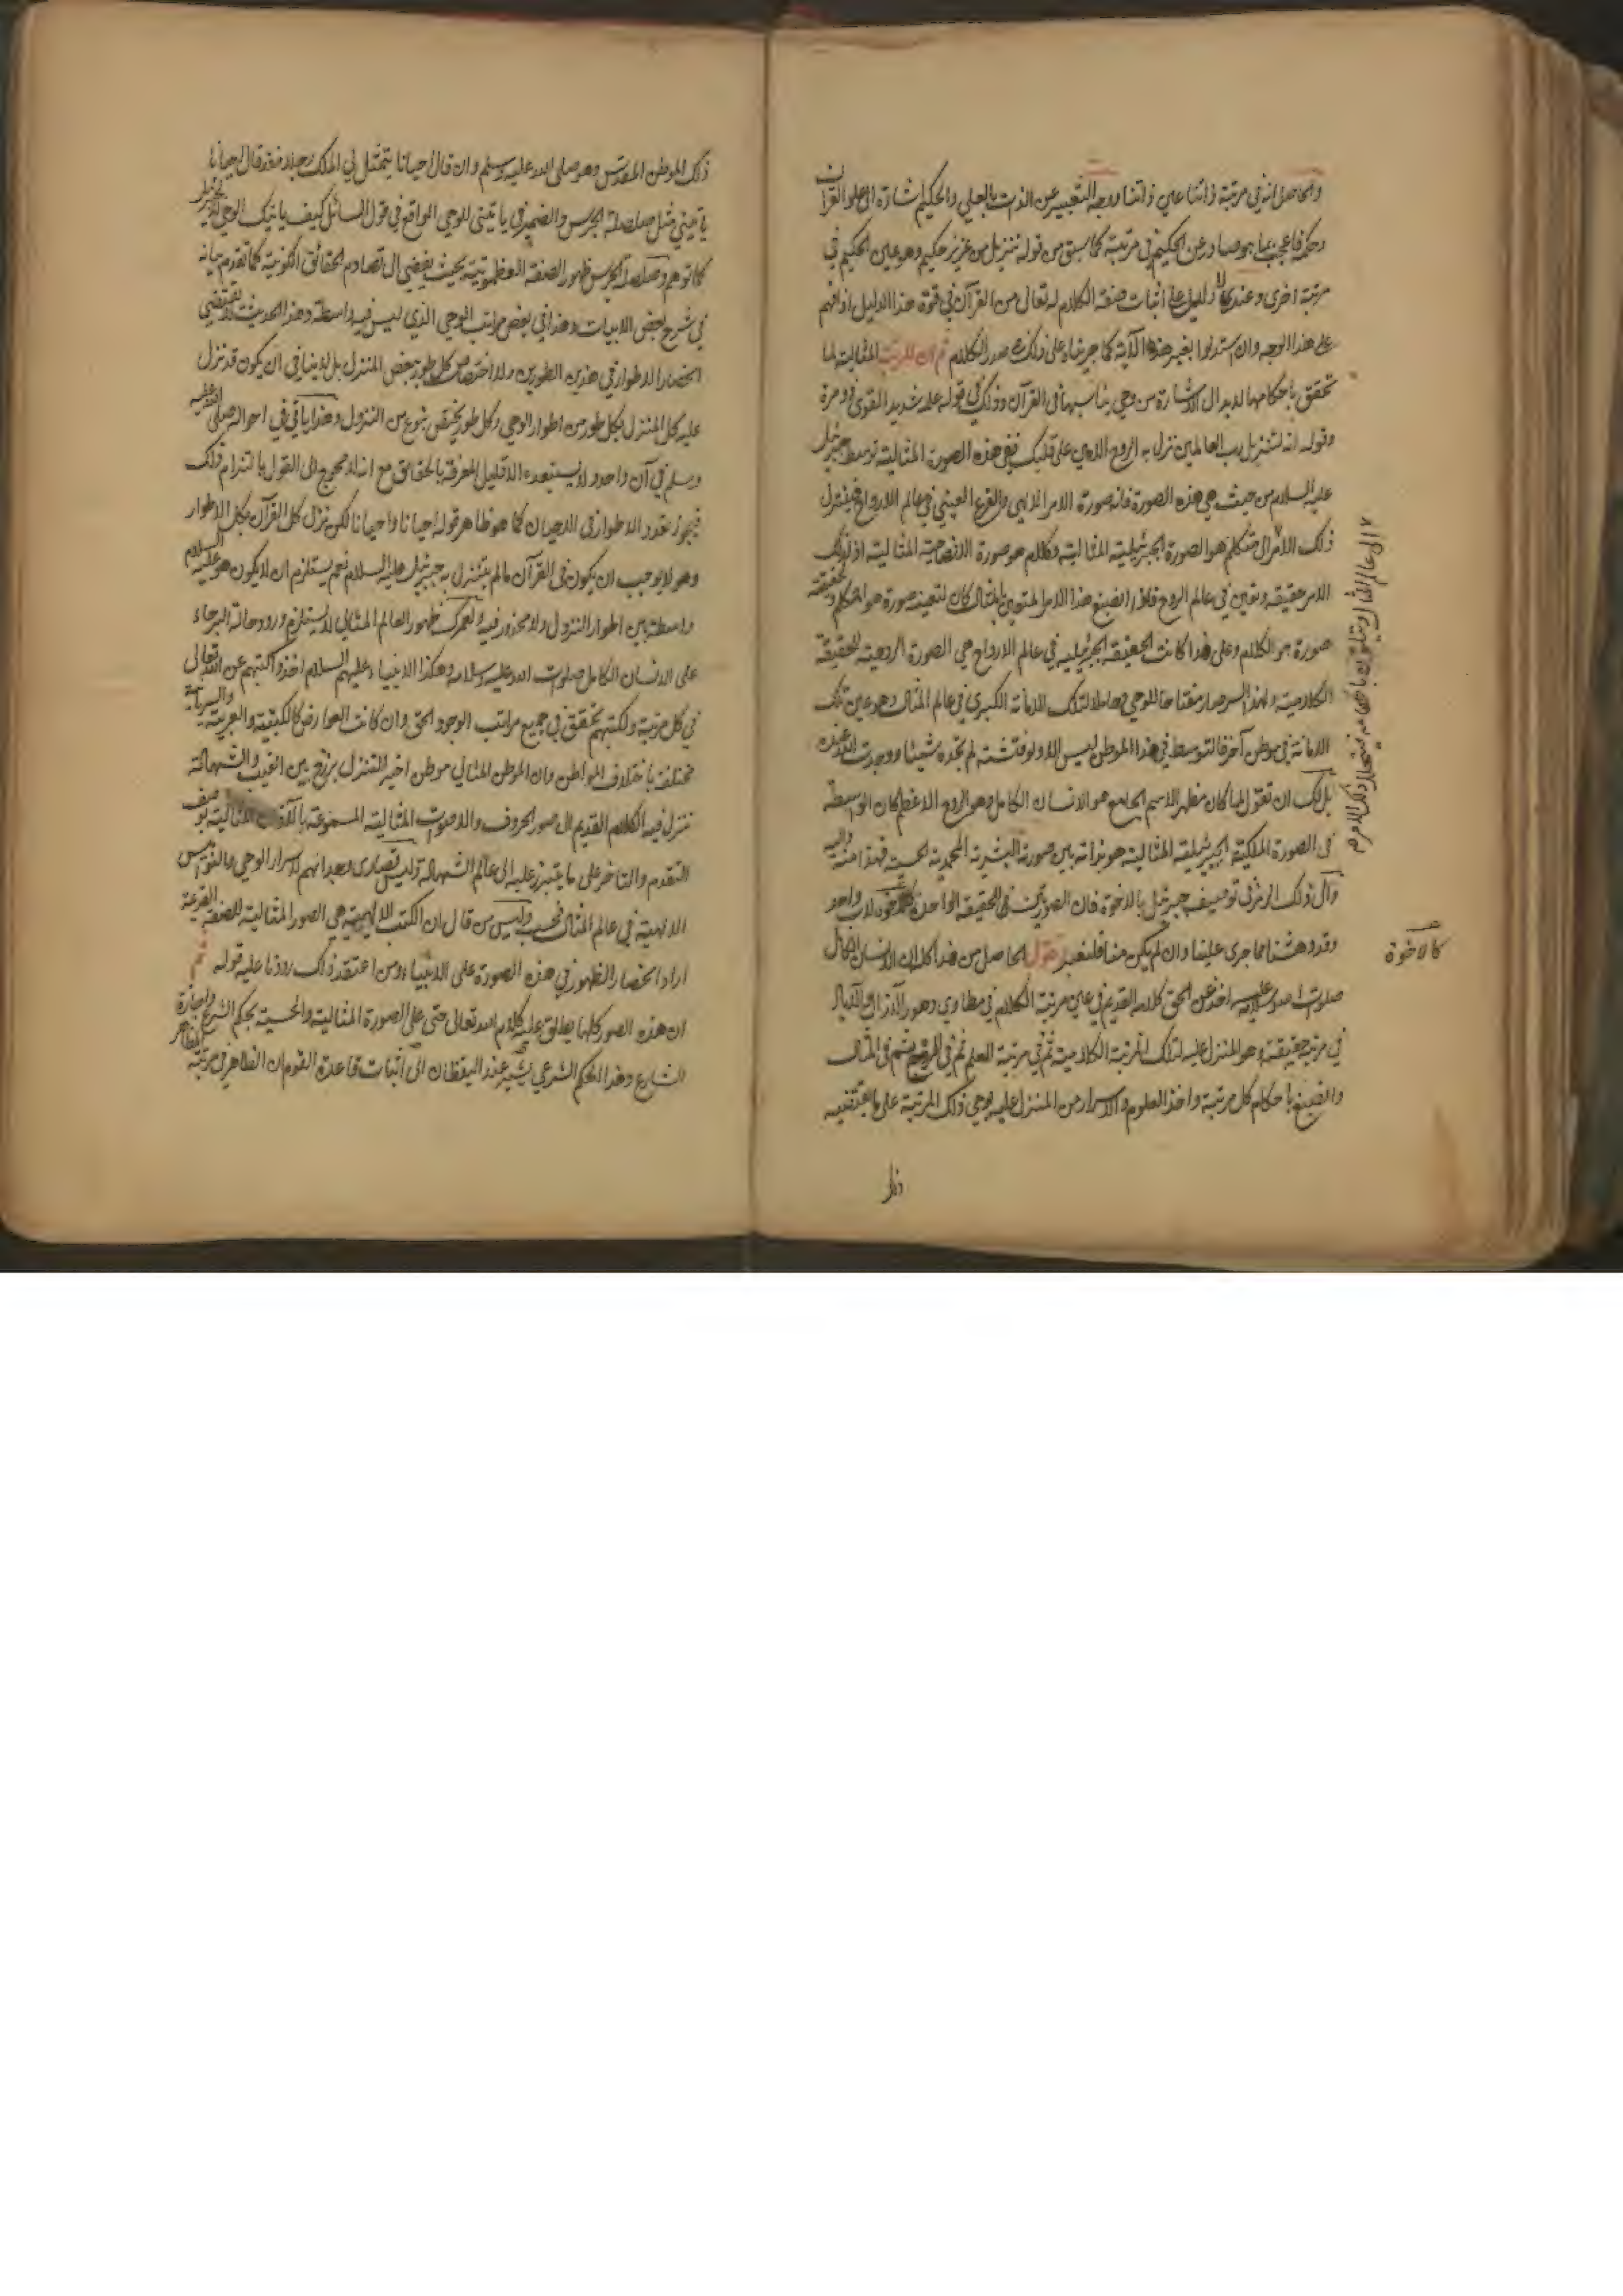 والحاصل انه في مرتبة ذاتنا عين ذاتنا ووجه التعبير عن الذات بالعلي والحكيم اشارة الى علو القرآن
وحكمة صادر عن الحكيم في مرتبة كما سبق من قوله تنزيل من عزيز حكيم وهو عين الحكيم في
مرتبة اخرى وعندي لا دليل على اثبات صفة الكلام له تعالى من القرآن في قوة هذا الدليل اذا فهم
على هذا الوجه وان استدلوا بغير هذه الآية كما جرينا على ذلك صدر الكلام ثم ان المرتبة المثالية لما
تحقق باحكامها لا بد الاشارة من وحي يناسبها في القرآن وذلك في قوله علمه شديد القوى ذو مرة
وقوله انه لتنزيل رب العالمين نزل به الروح الامين على قلبك ففي هذه الصورة المثالية توسط جبرئيل
عليه السلام من حيث هي هذه الصورة فانه صورة الامر الالهي والفرع العيني في عالم الارواح فيتنزل
ذلك الامر الى متكلم هو الصورة الجبرئيلية المثالية وكلام هو صورة الافصاحية المثالية اذ لذلك
الامر حقيقة وتعين في عالم الروح فاذا انصبغ هذا الامر المتعين بالمثال كان لتعينه صورة هو المتكلم ولحقيقته
صورة هو الكلام وعلى هذا كانت الحقيقة الجبرئيلية في عالم الارواح هي الصورة الروحية للحقيقة
الكلامية ولهذا السر صار مفتاحا للوحي وحاملا لتلك الامانة الكبرى في عالم المثال وهو عين تلك
الامانة في موطن آخر فالتوسط في هذا الموطن ليس الا ولو فتشته لم تجده شيئا ووجدت الله عنده
بل لك ان تقول لما كان مظهر الاسم الجامع هو الانسان الكامل وهو الروح الاعظم كان الواسطة
في الصورة الملكية الجبرئيلية المثالية هو بذاته بين صورته البشرية المحمدية الحسية فهذا منه واليه
وآل ذلك الرمز في توصيف جبرئيل بالاخوة فان الصورتين في الحقيقة الواحدة لاب واحد
كالاخوة
وقد دهشنا مما جرى علينا وان لم يكن منا فلنعد فنقول الحاصل من هذا كله ان الانسان الكامل
صلوات الله وسلامه عليه اخذ عن الحق كلامه القديم في عين مرتبة الكلام في مطاوي دهور الآزال والآباد
في مرتبة حقيقته وهو المنزل عليه لتلك المرتبة الكلامية ثم في مرتبة العلم ثم في الروح ثم في المثال
وانصبغ باحكام كل مرتبة واخذ العلوم والاسرار من المنزل عليه بوحي ذلك المرتبة على ما يقتضيه
ذلك
ذلك الموطن المقدس وهو صلى الله عليه وسلم وان قال احيانا يتمثل لي الملك رجلا فقد قال احيانا
يأتيني مثل صلصلة الجرس والضمير في يأتيني للوحي الواقع في قول السائل كيف يأتيك الوحي
كما توهم وصلصلة الجرس ظهور الصفة العظموتية بحيث يفضي الى تصادم الحقائق الكونية كما تقدم بيانه
في شرح بعض الابيات وهذا في بعض مراتب الوحي الذي ليس فيه واسطة وهذا الحديث لا يقتضي
انحصار الاطوار في هذين الطورين ولا اختصاص كل طور ببعض المنزل بل لا ينافي ان يكون قد نزل
عليه كل المنزل بكل طور من اطوار الوحي وكل طور يختص بنوع من النزول وهذا يأتي في احواله صلى الله عليه
وسلم في آن واحد ولا يستبعده الا قليل المعرفة بالحقائق مع انه لا محوج الى القول بالتزام ذلك
فيجوز تعدد الاطوار في الاحيان كما هو ظاهر قوله احيانا واحيانا لكن نزل كل القرآن بكل الاطوار
وهو لا يوجب ان يكون في القرآن ما لم يتنزل به جبرئيل عليه السلام نعم يستلزم ان لا يكون هو عليه السلام
واسطة بين اطوار النزول ولا محذور فيه لعمرك ظهور العالم المثالي لا يستلزم ورود حالة البرحاء
على الانسان الكامل صلوات الله عليه وسلامه وهكذا الانبياء عليهم السلام اخذوا كتبهم عن الله تعالى
في كل مرتبة ولكتبهم تحقق في جميع مراتب الوجود الحق وان كانت العوارض كالكتبية والعربية والسريانية
مختلفة باختلاف المواطن وان الموطن المثالي موطن اخير للتنزل برزخ بين الغيب والشهادة
تنزل فيه الكلام القديم الى صور الحروف والاصوات المثالية المسموعة بالآذان المثالية بوصف
التقدم والتاخر على ما يتبرز عليه الى عالم الشهادة وليس قصارى وجدانهم لاسرار الوحي والنواميس
الالهية في عالم المثال فحسب وليس من قال ان الكتب الالهية هي الصور المثالية للصفة القديمة
اراد انحصار الظهور في هذه الصورة على الانبياء ومن اعتقد ذلك رددنا عليه قوله ثم
ان هذه الصور كلها يطلق عليه كلام الله تعالى حتى على الصورة المثالية والحسية بحكم الشرع
الشارع وهذا الحكم الشرعي يشير عند اليقظان الى اثبات قاعدة القوم ان الظاهر في مرتبة